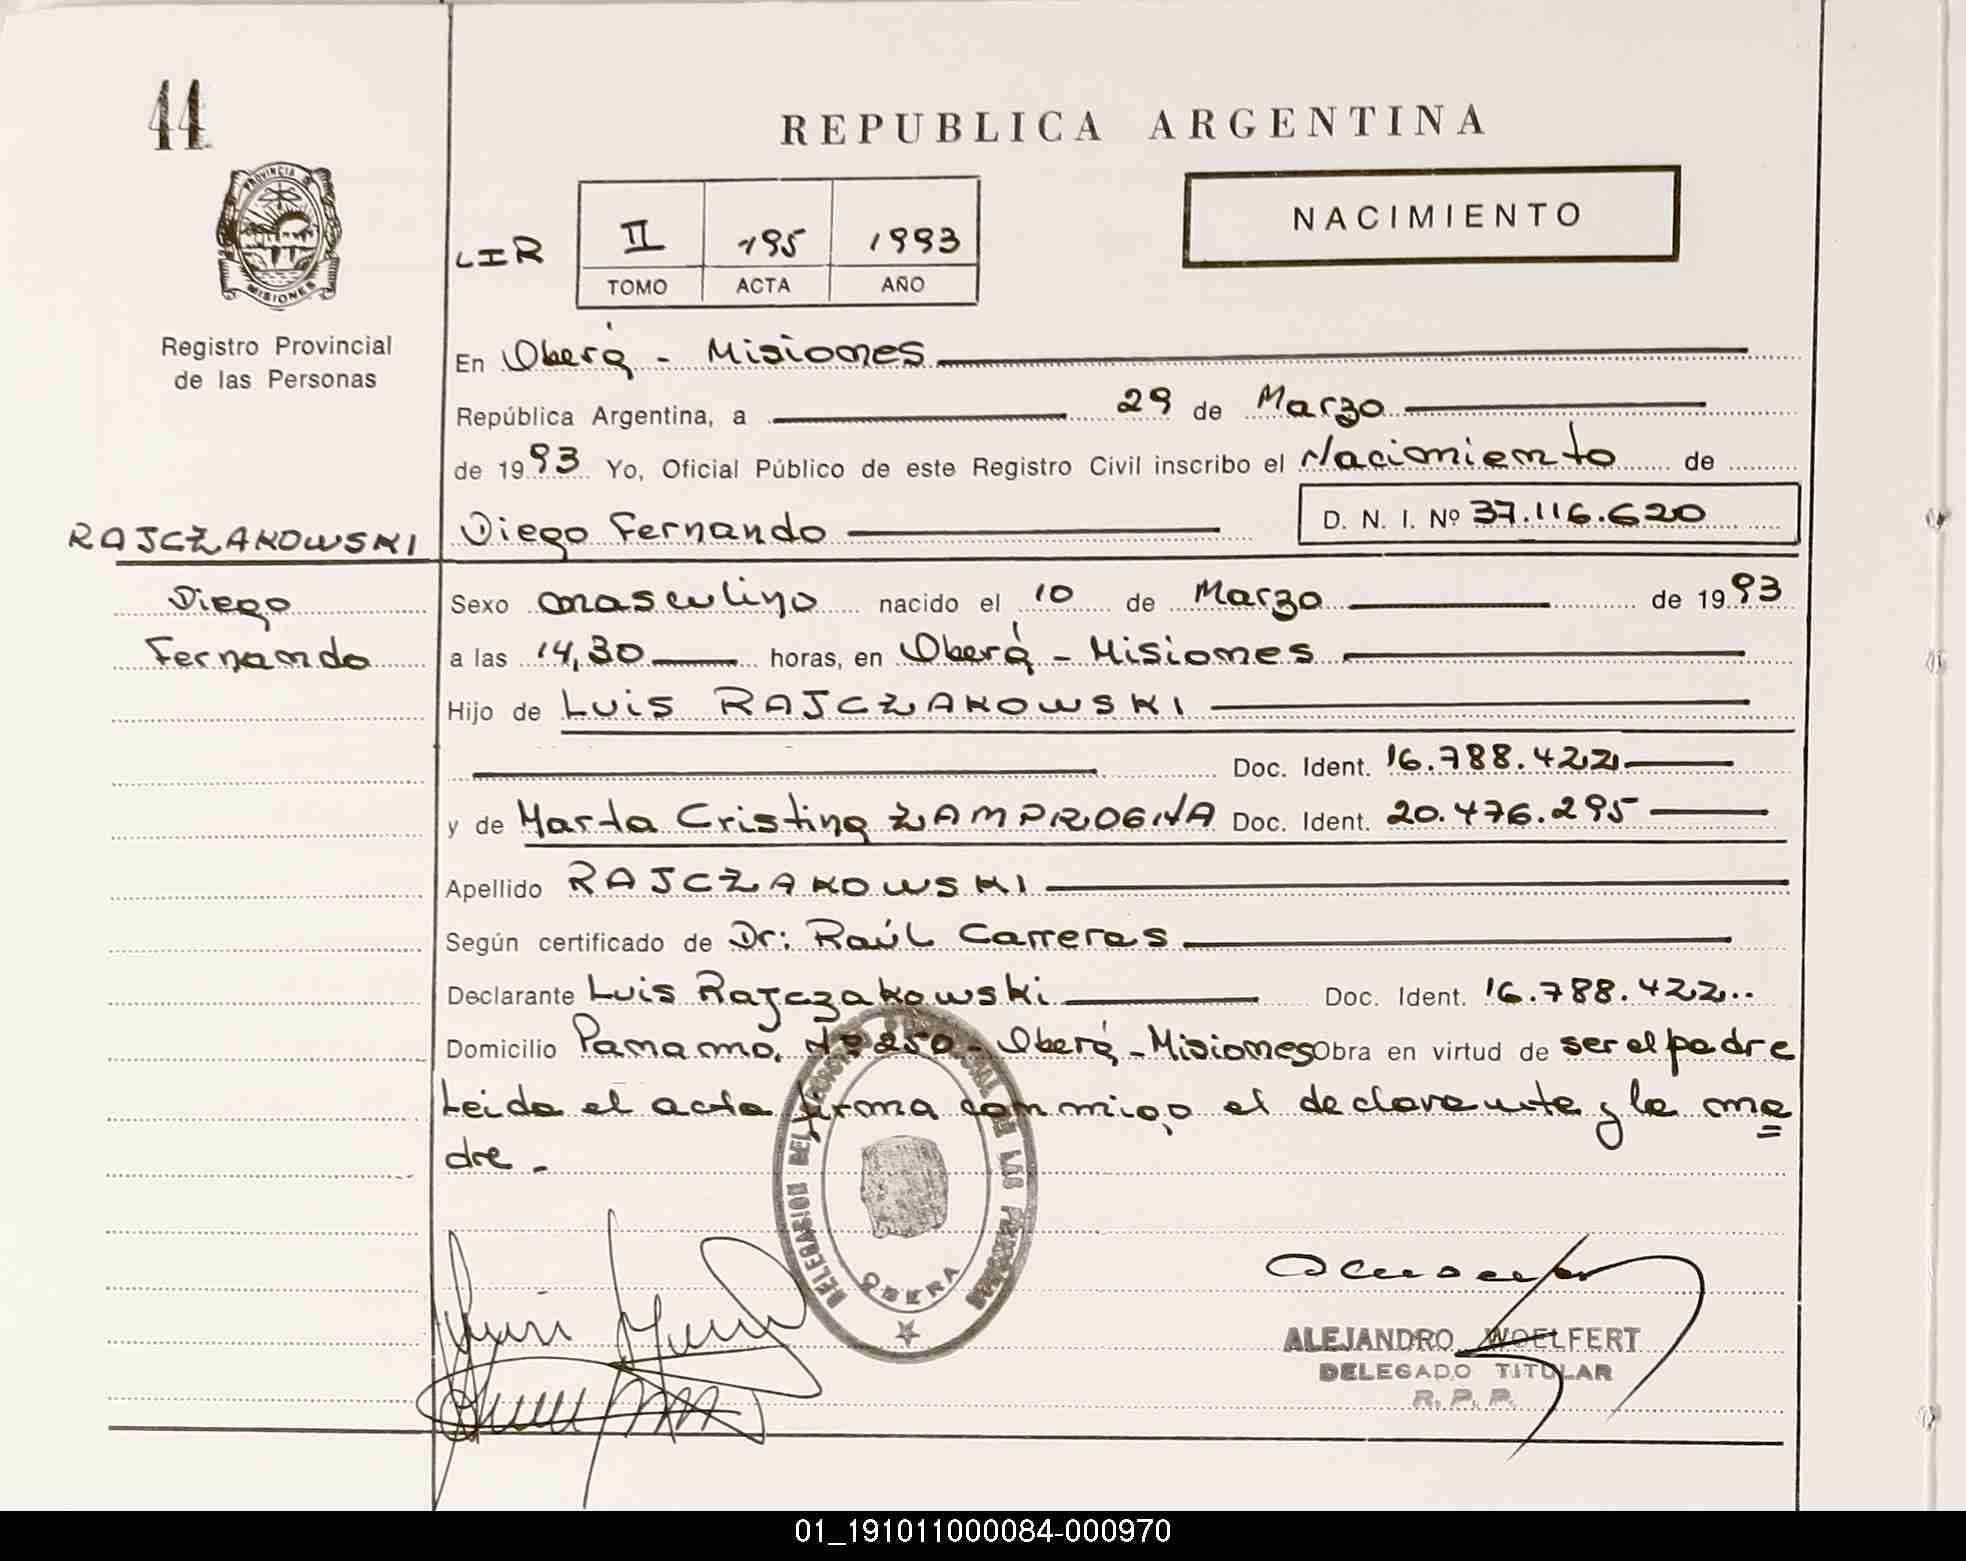 44
REPUBLICA ARGENTINA
PROVINCIA DE
MISIONES
Registro Provincial
de las Personas
NACIMIENTO
LIR II 195 1993
TOMO ACTA AÑO
En Oberá - Misiones
República Argentina, a 29 de Marzo
de 1993 Yo, Oficial Público de este Registro Civil inscribo el Nacimiento de
RAJCZAKOWSKI
Diego
Fernando
Diego Fernando D. N. I. Nº 37.116.620
Sexo masculino nacido el 10 de Marzo de 1993
a las 14,30 horas, en Oberá - Misiones
Hijo de Luis RAJCZAKOWSKI
Doc. Ident. 16.788.422
y de Marta Cristina ZAMPROGNA Doc. Ident. 20.476.295
Apellido RAJCZAKOWSKI
Según certificado de Dr: Raúl Carreras
Declarante Luis Rajczakowski Doc. Ident. 16.788.422..
Domicilio Panama. Nº 250 - Oberá - Misiones Obra en virtud de ser el padre
Leida el acta firma conmigo el declarante y la ma
dre.
DELEGACION DEL REGISTRO PROVINCIAL DE LAS PERSONAS
OBERA
ALEJANDRO WOELFERT
DELEGADO TITULAR
R. P. P.
01_191011000084-000970